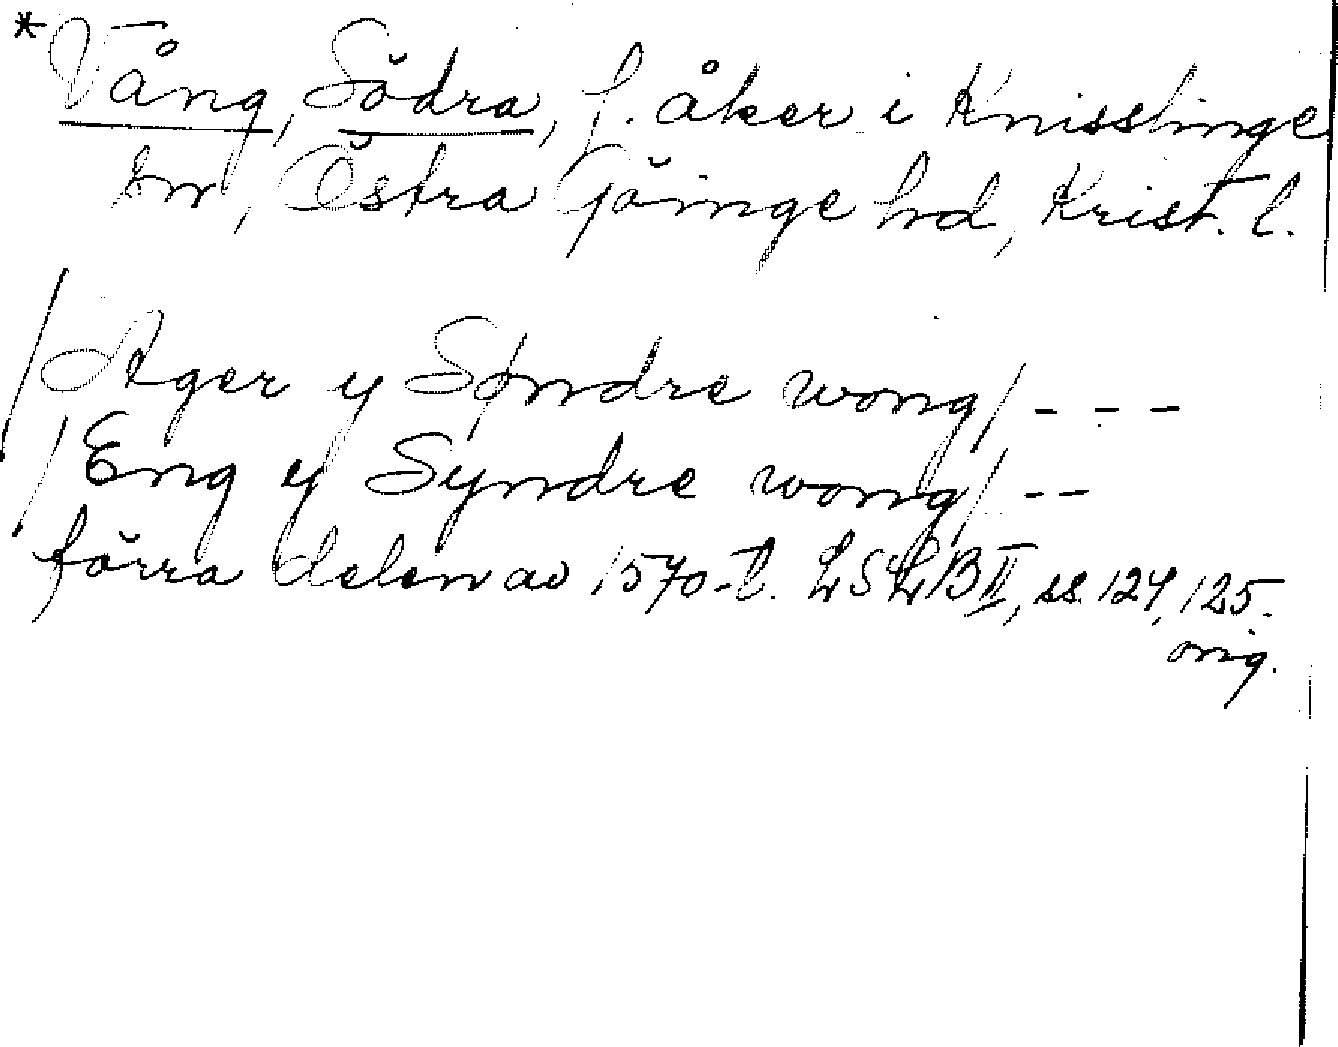 *Vång, Södra, f. åker i Knisslinge
sn, Östra Göinge hd, Krist. l.
/Ager y Syndre wong/ - - -
/Eng y Syndre wong/ - -
förra delen av 1570-t. LSLB II, ss. 124, 125.
orig.